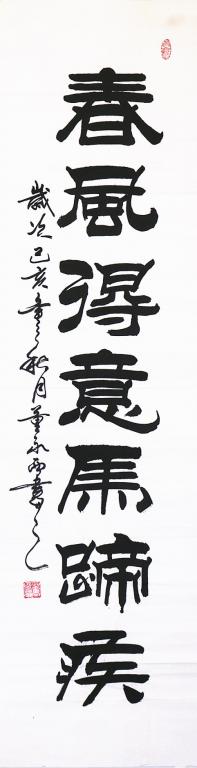 春風得意馬蹄疾
歲次己亥年秋月董永西書